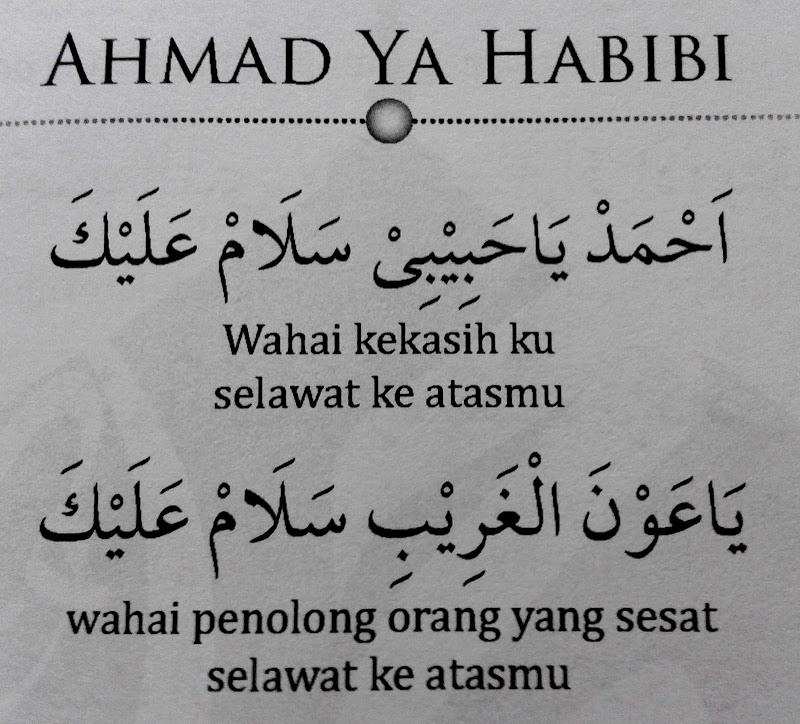 AHMAD YA HABIBI
اَحْمَدْ يَاحَبِيْبِىْ سَلَامْ عَلَيْكَ
Wahai kekasih ku
selawat ke atasmu
يَاعَوْنَ الْغَرِيْبِ سَلَامْ عَلَيْكَ
wahai penolong orang yang sesat
selawat ke atasmu